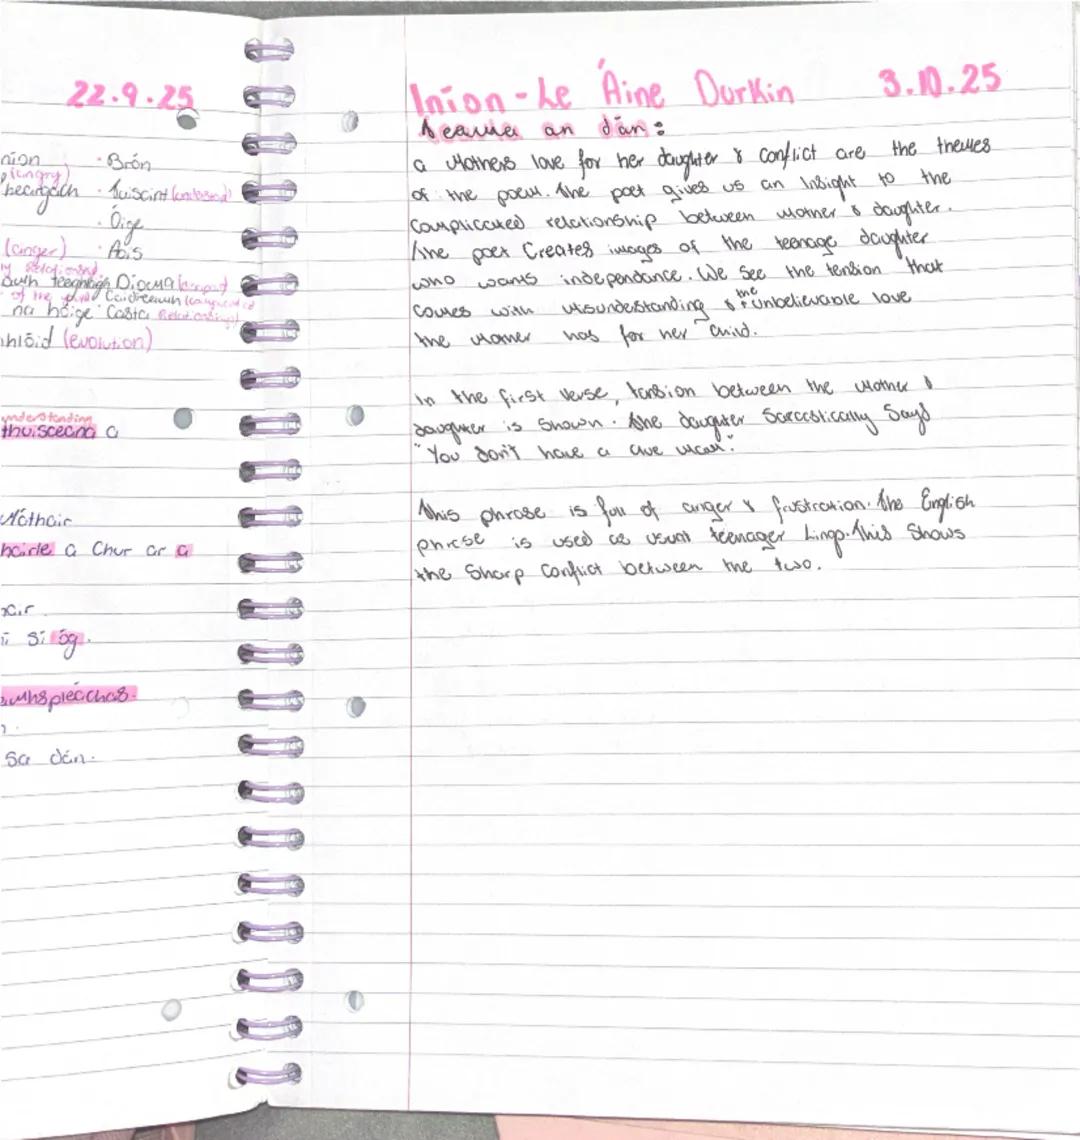 22.9.25
· Brón
(angry)
· Tuiscint (understand)
· Óige
(anger) · Aois
Casta
na hóige
(evolution)
understanding
thuisceana a
Máthair
a Chur ar a
sí óg.
sa dán.
Iníon - Le Áine Durkin 3.10.25
Téama an dán:
a Mothers love for her daughter & conflict are the themes
of the poem. The poet gives us an Insight to the
Complicated relationship between mother & daughter.
The poet Creates images of the teenage daughter
who wants independance. We see the tension that
Comes with Misunderstanding & the unbelievable love
the Mother has for her child.
In the first verse, tension between the Mother &
daughter is Shown. The daughter Sarcastically Says
"You don't have a clue Mam."
This phrase is full of anger & frustration. The English
phrase is used as usual teenager Lingo. This Shows
the Sharp Conflict between the two.